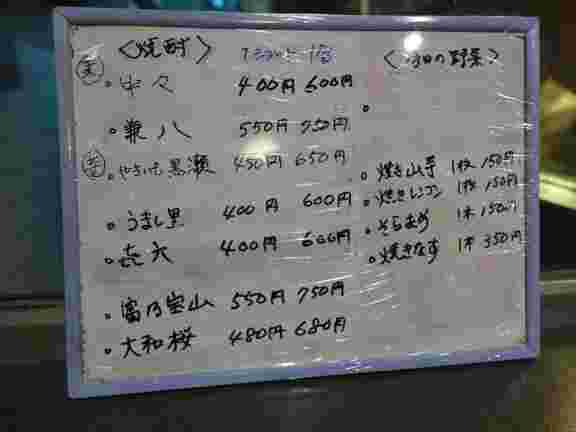 <焼酎>
麦
・中々 400円 600円
・兼八 550円 750円
・やきいも黒瀬 450円 650円
・うまし里 400円 600円
・㐂六 400円 600円
・富乃宝山 550円 750円
・大和桜 480円 680円
の野菜>
・焼き山芋 1枚 150円
・焼きレンコン 1枚 150円
・そらまめ 1本 150円
・焼きなす 1本 350円